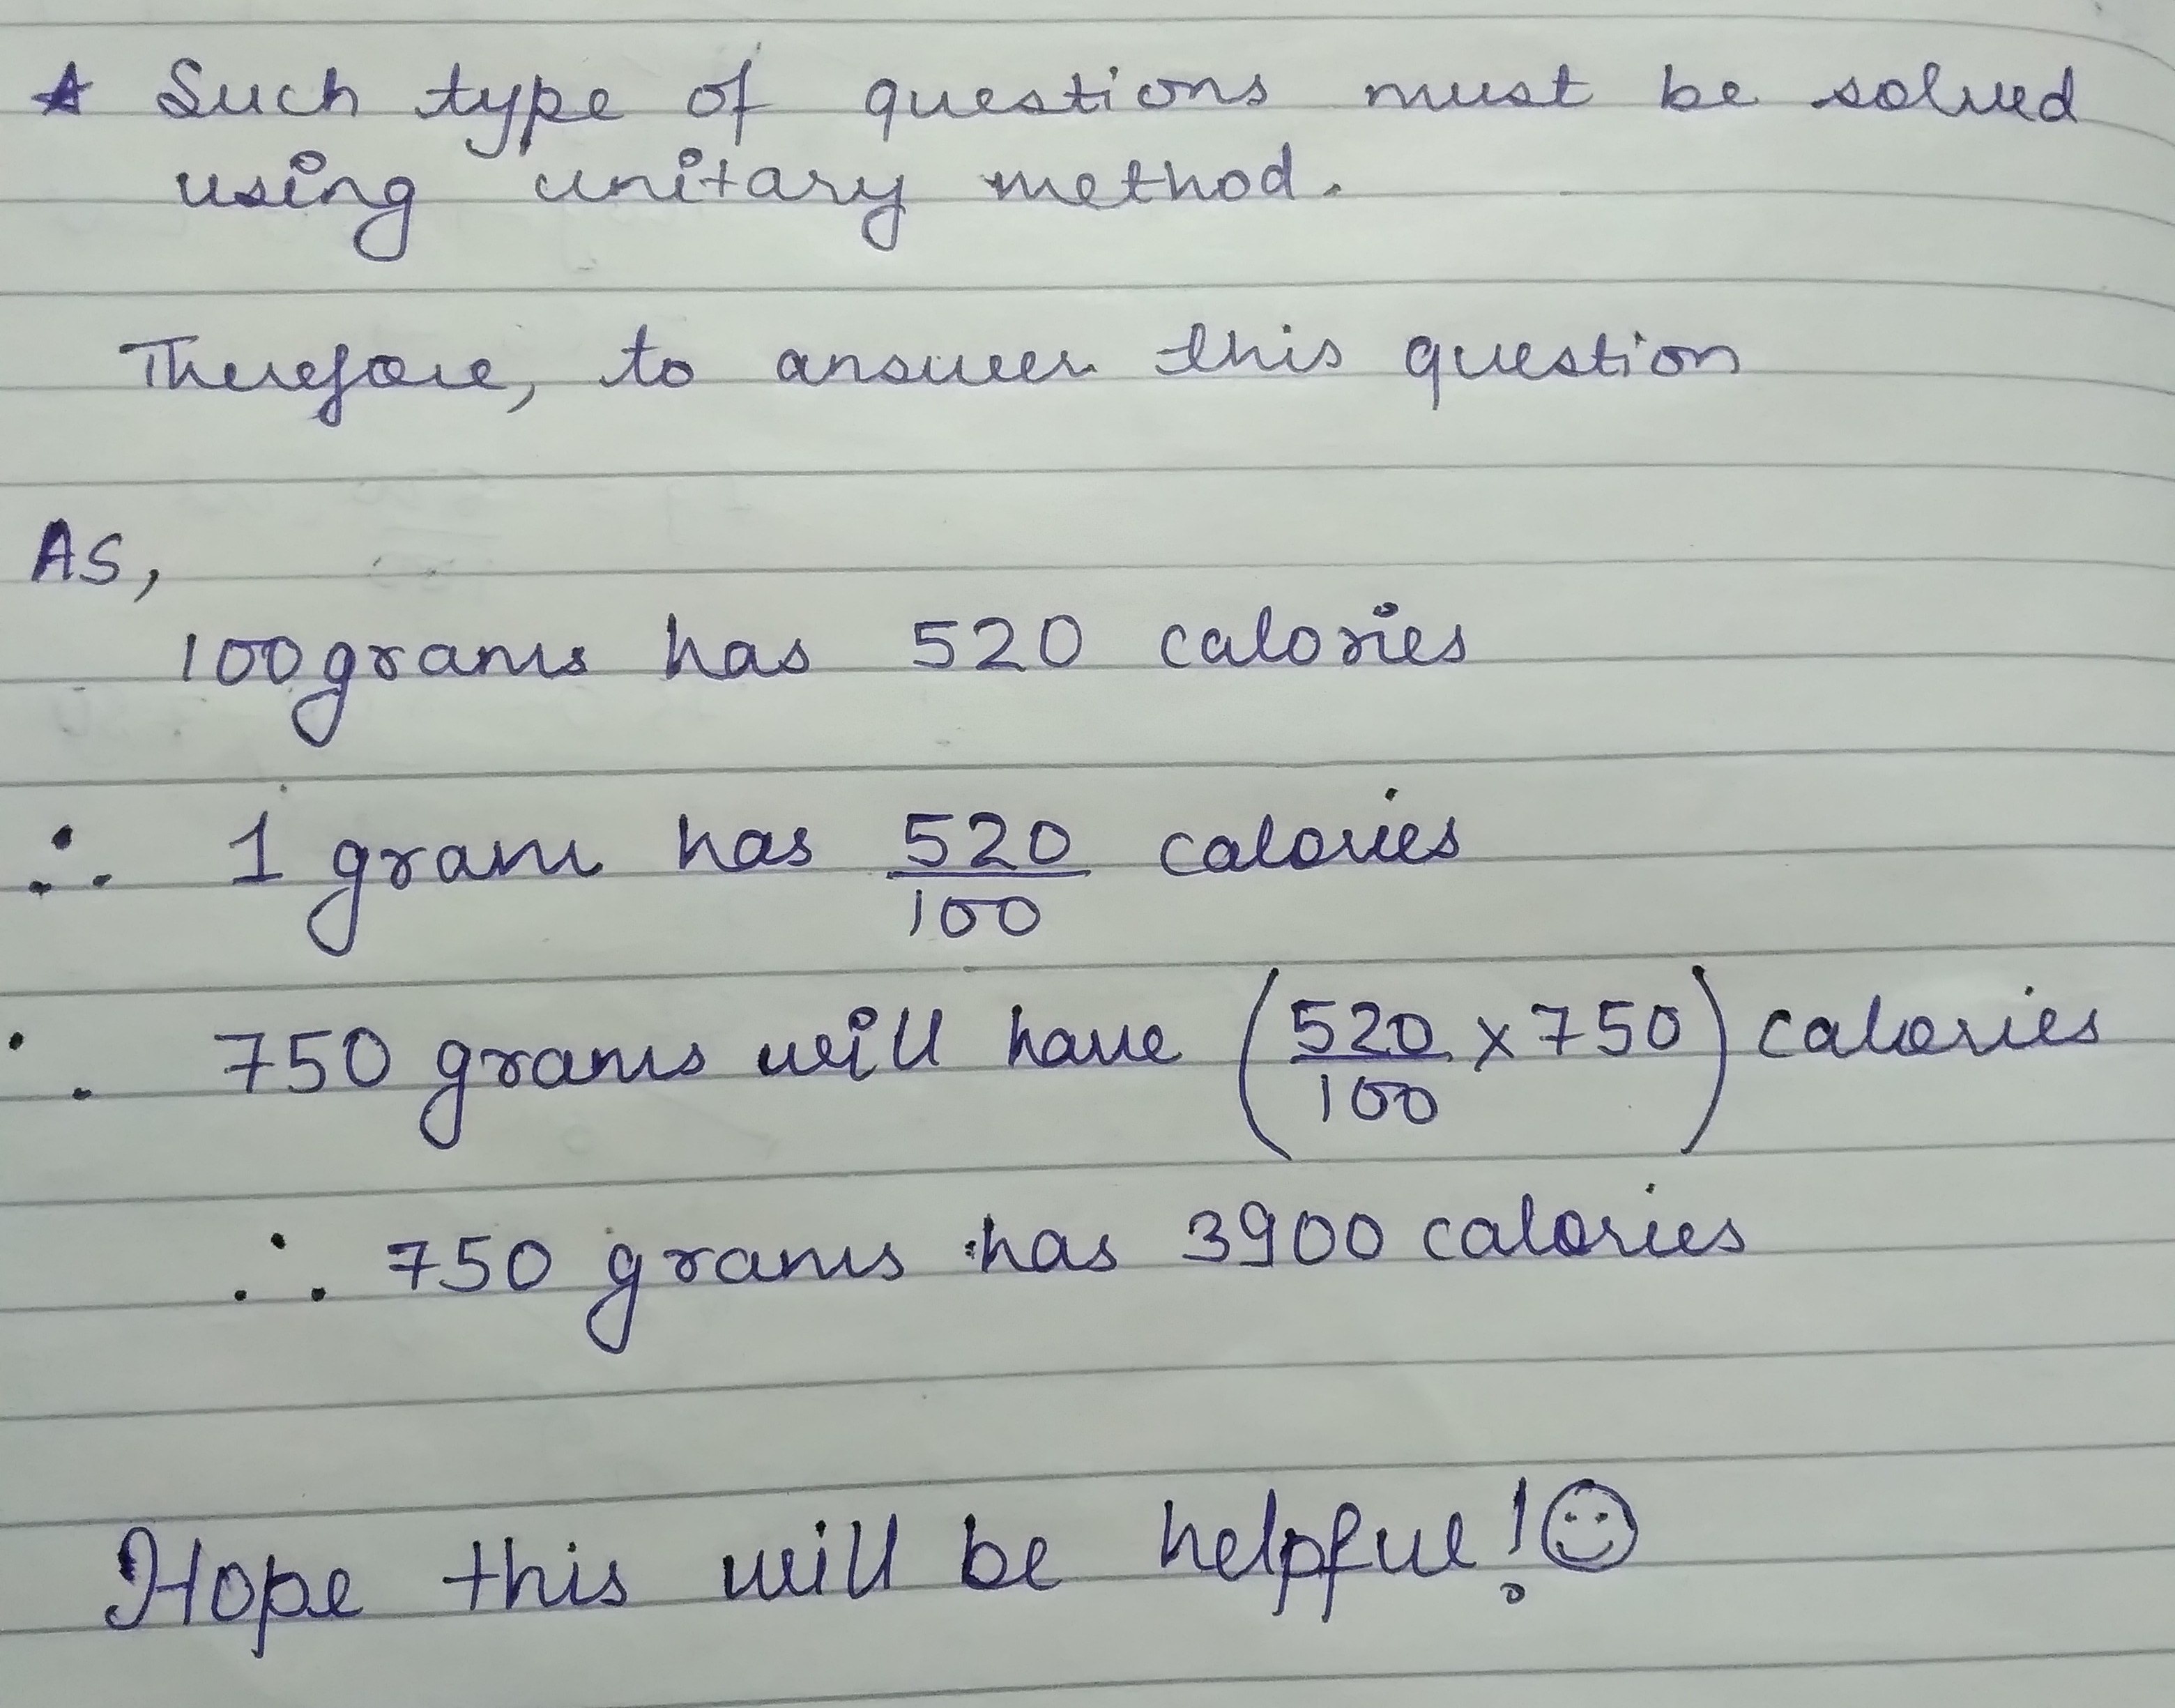 ★ Such type of questions must be solved
using unitary method.
Therefore, to answer this question
AS,
100grams has 520 calories
∴ 1 gram has 520/100 calories
∴ 750 grams will have (520/100 x 750) calories
∴ 750 grams has 3900 calories
Hope this will be helpful! ☺